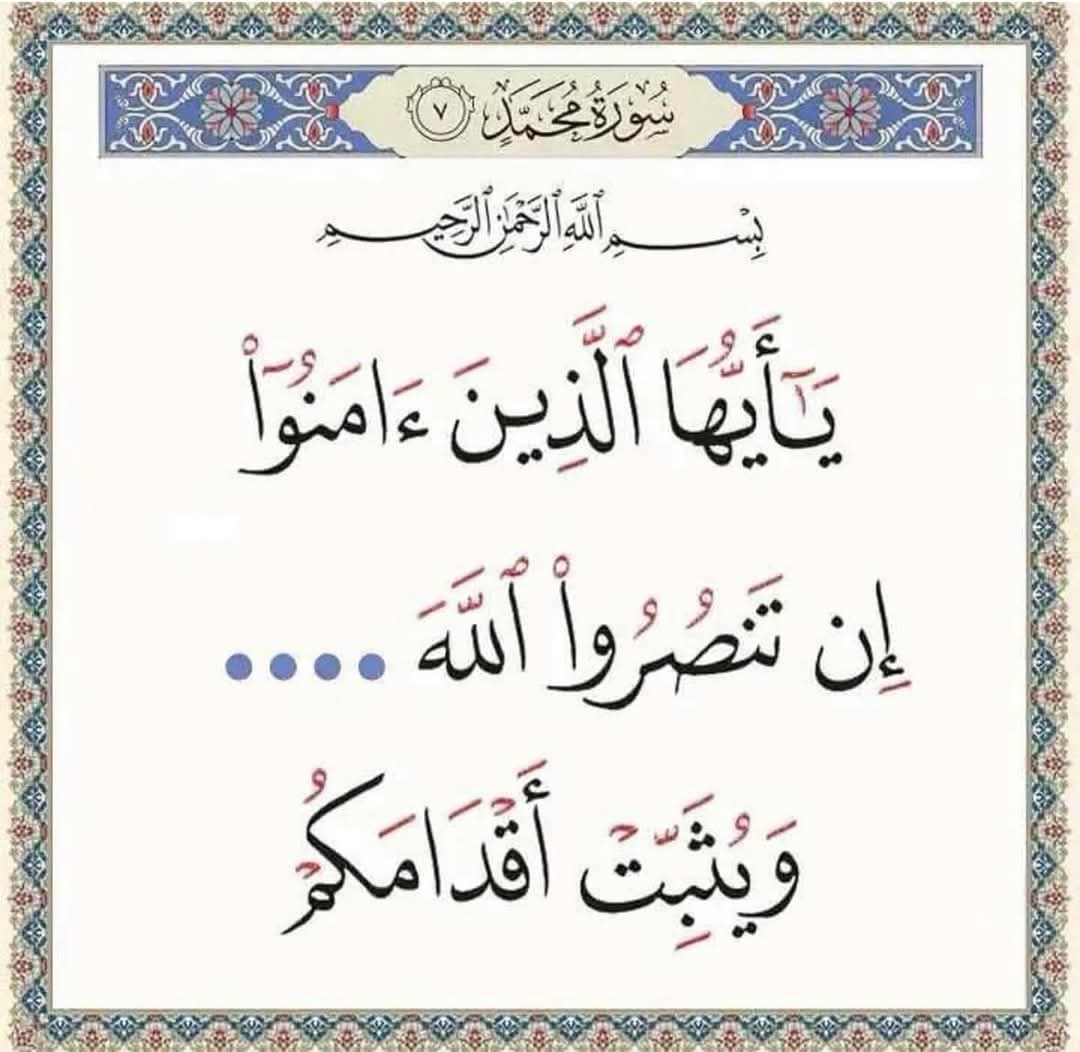 سُورَةُ مُحَمَّدٍ ٧
بِسْمِ ٱللَّهِ ٱلرَّحْمَٰنِ ٱلرَّحِيمِ
يَـٰٓأَيُّهَا ٱلَّذِينَ ءَامَنُوٓا۟
إِن تَنصُرُوا۟ ٱللَّهَ ....
وَيُثَبِّتْ أَقْدَامَكُمْ